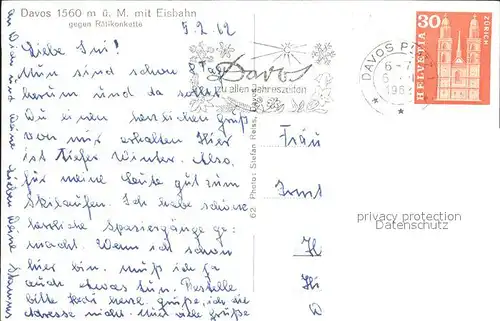 Davos 1560 m ü. M. mit Eisbahn
gegen Rätikonkette
5.2.62
Liebe Lui!
Nun sind schon 8 Tage
herum und da sollst
Du einen herzlichen Gruß
von mir erhalten. Hier
ist tiefer Winter. Also
für meine Leute gut zum
Skilaufen. Ich habe schöne
herrliche Spaziergänge ge-
macht. Wenn ich schon
hier bin, muß ich ja
auch etwas tun. Bestelle
bitte herzl. Grüße, ich die
Adresse nicht. Nun viele Grüße
und Deine lieben
Davos
zu allen Jahreszeiten
DAVOS P
6-
196
30
HELVETIA
ZÜRICH
62 Photo: Stefan Reiss, Davos
Frau
Ernst
H
Hi
D
privacy protection
Datenschutz